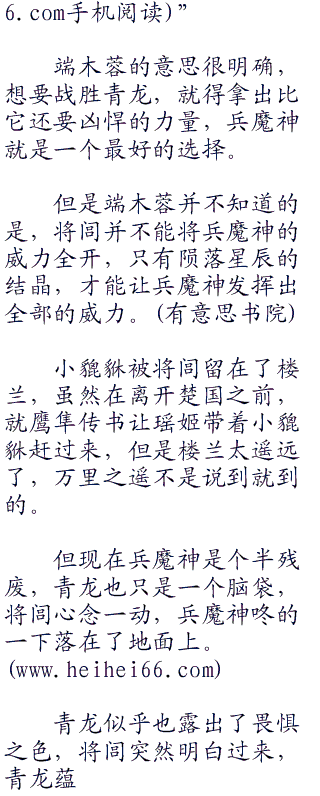 6.com手机阅读)”
端木蓉的意思很明确，
想要战胜青龙，就得拿出比
它还要凶悍的力量，兵魔神
就是一个最好的选择。
但是端木蓉并不知道的
是，将闾并不能将兵魔神的
威力全开，只有陨落星辰的
结晶，才能让兵魔神发挥出
全部的威力。(有意思书院)
小貔貅被将闾留在了楼
兰，虽然在离开楚国之前，
就鹰隼传书让瑶姬带着小貔
貅赶过来，但是楼兰太遥远
了，万里之遥不是说到就到
的。
但现在兵魔神是个半残
废，青龙也只是一个脑袋，
将闾心念一动，兵魔神咚的
一下落在了地面上。
(www.heihei66.com)
青龙似乎也露出了畏惧
之色，将闾突然明白过来，
青龙蕴